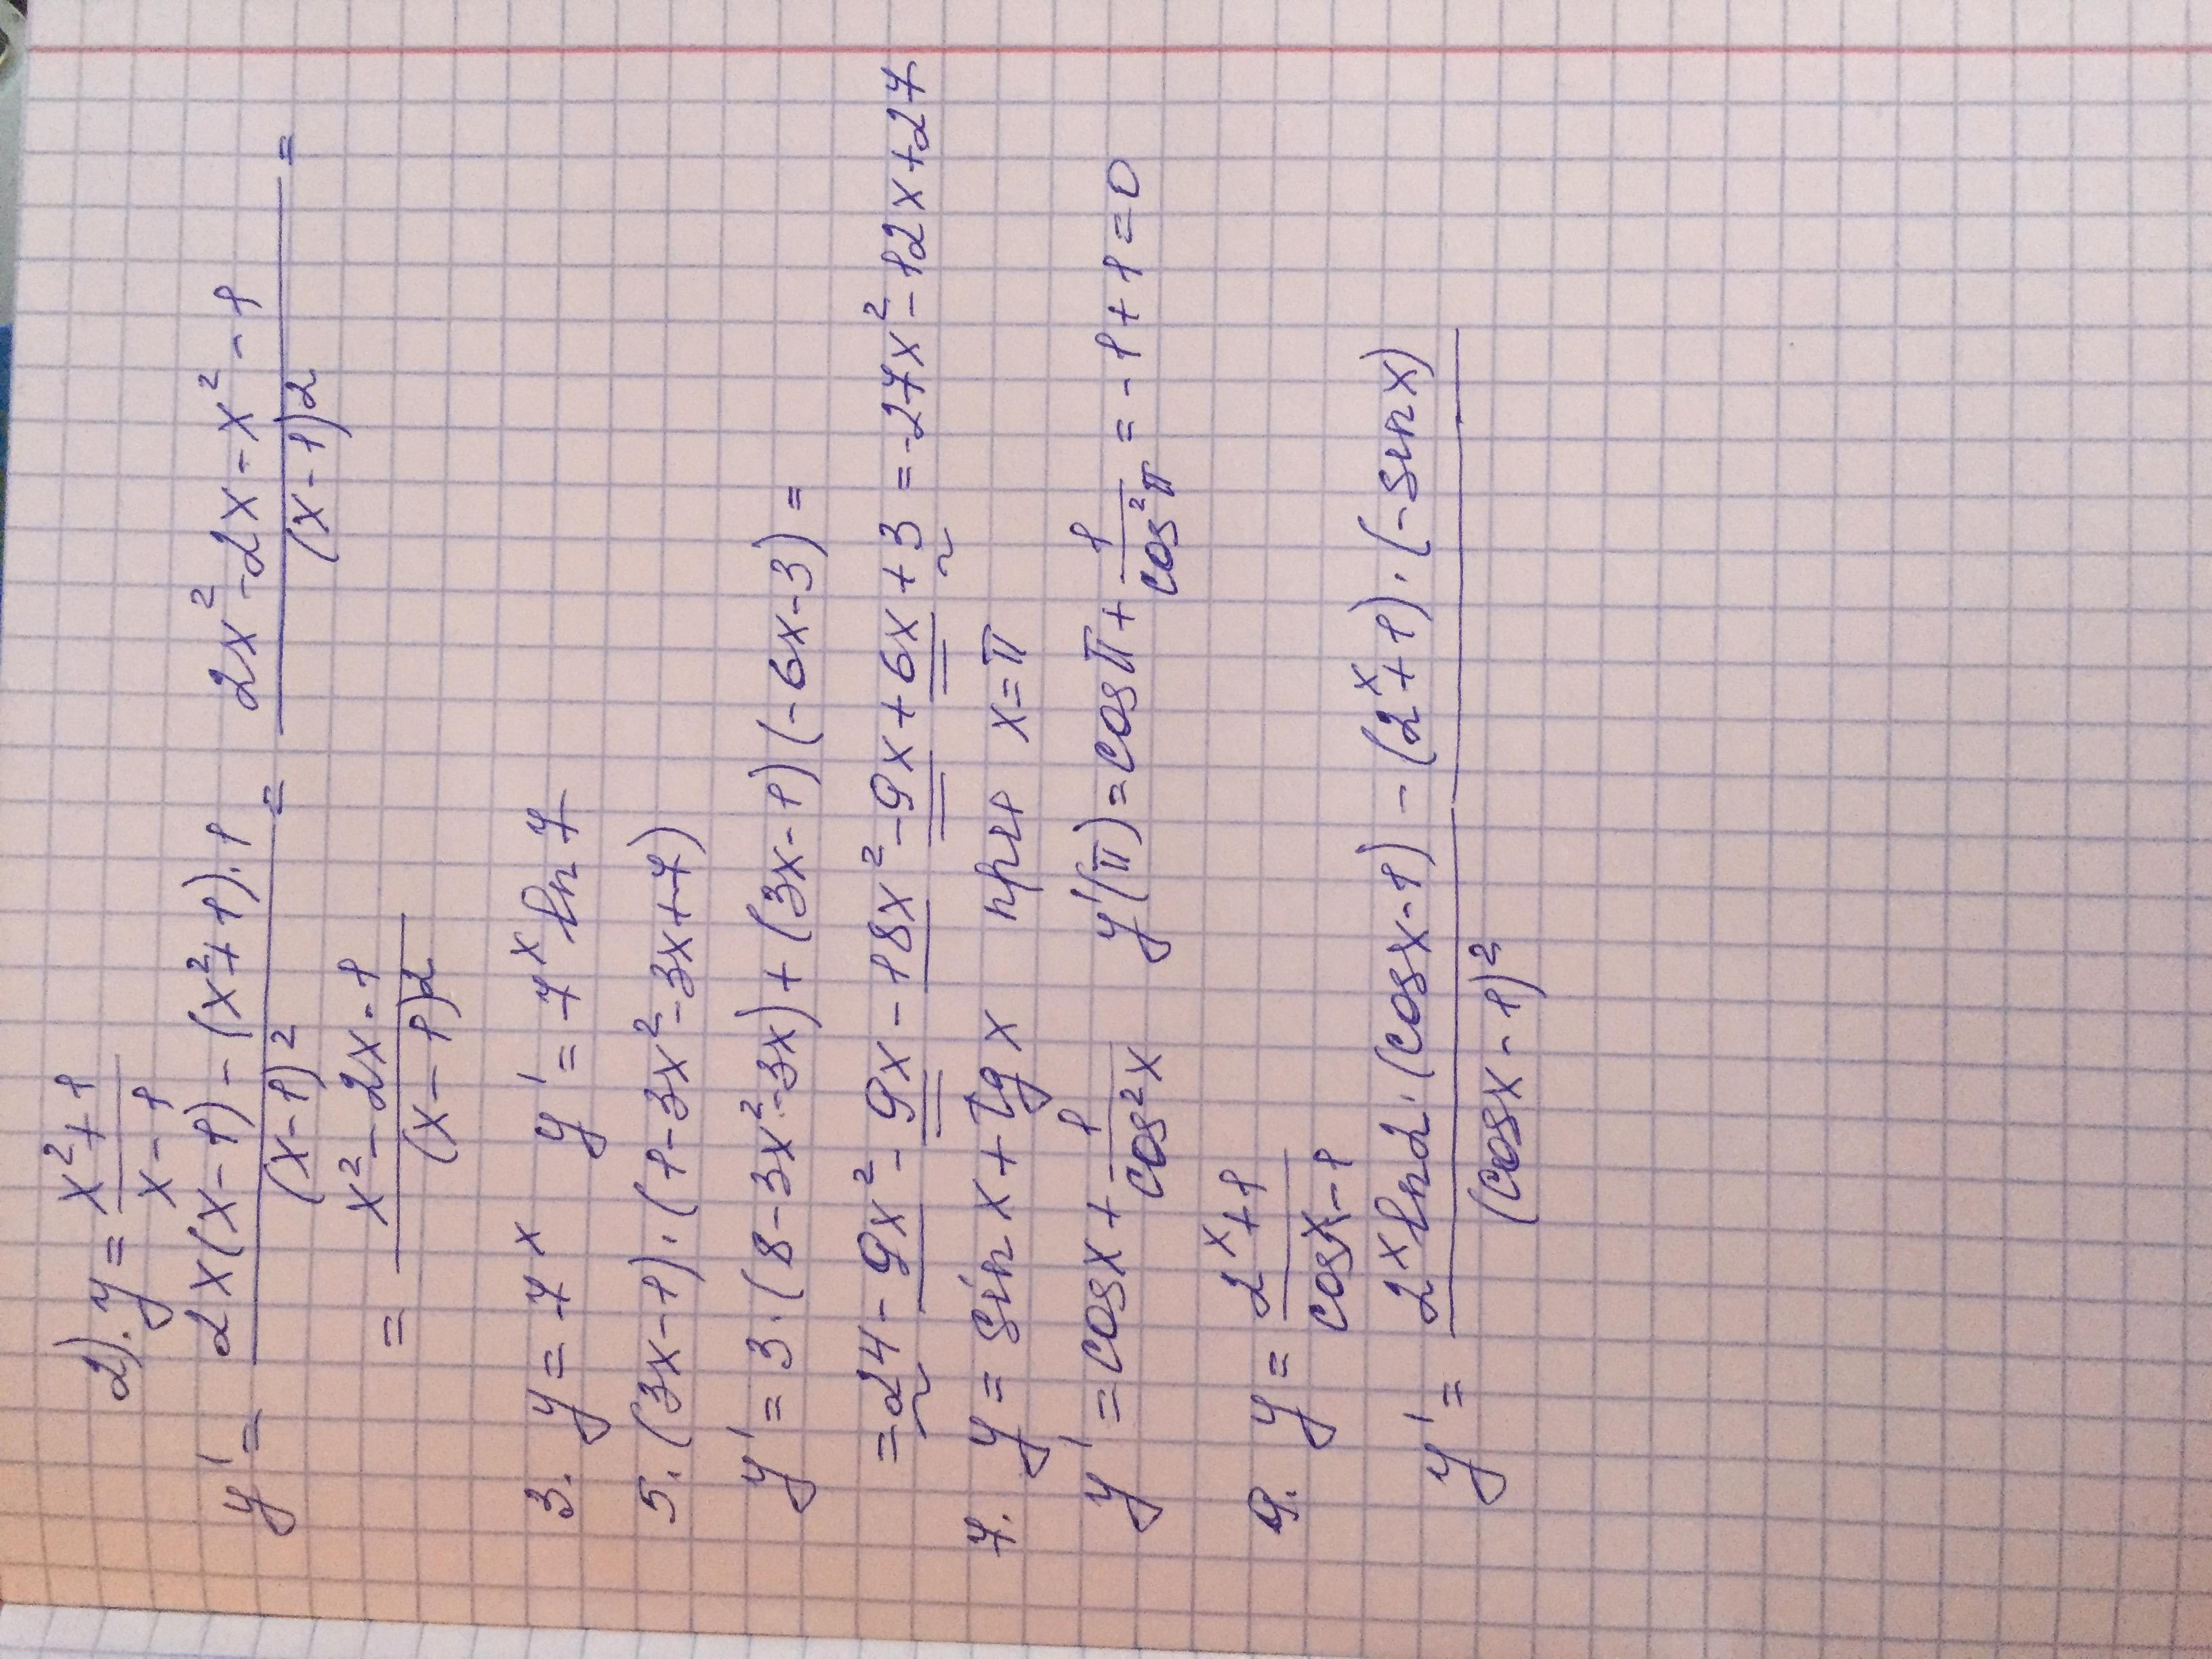 2). y = (x²+1)/(x-1)
y' = (2x(x-1) - (x²+1)·1)/(x-1)² = (2x²-2x-x²-1)/(x-1)² =
= (x²-2x-1)/(x-1)²
3. y = 7ˣ y' = 7ˣ ln 7
5. (3x-1)·(1-3x²-3x+7)
y' = 3·(8-3x²-3x)+(3x-1)(-6x-3) =
= 24-9x²-9x-18x²-9x+6x+3 = -27x²-12x+27
7. y = sin x + tg x при x = π
y' = cosx + 1/cos²x y'(π) = cos π + 1/cos²π = -1+1=0
9. y = (2ˣ+1)/(cosx-1)
y' = (2ˣ ln2·(cosx-1) - (2ˣ+1)·(-sinx))/(cosx-1)²